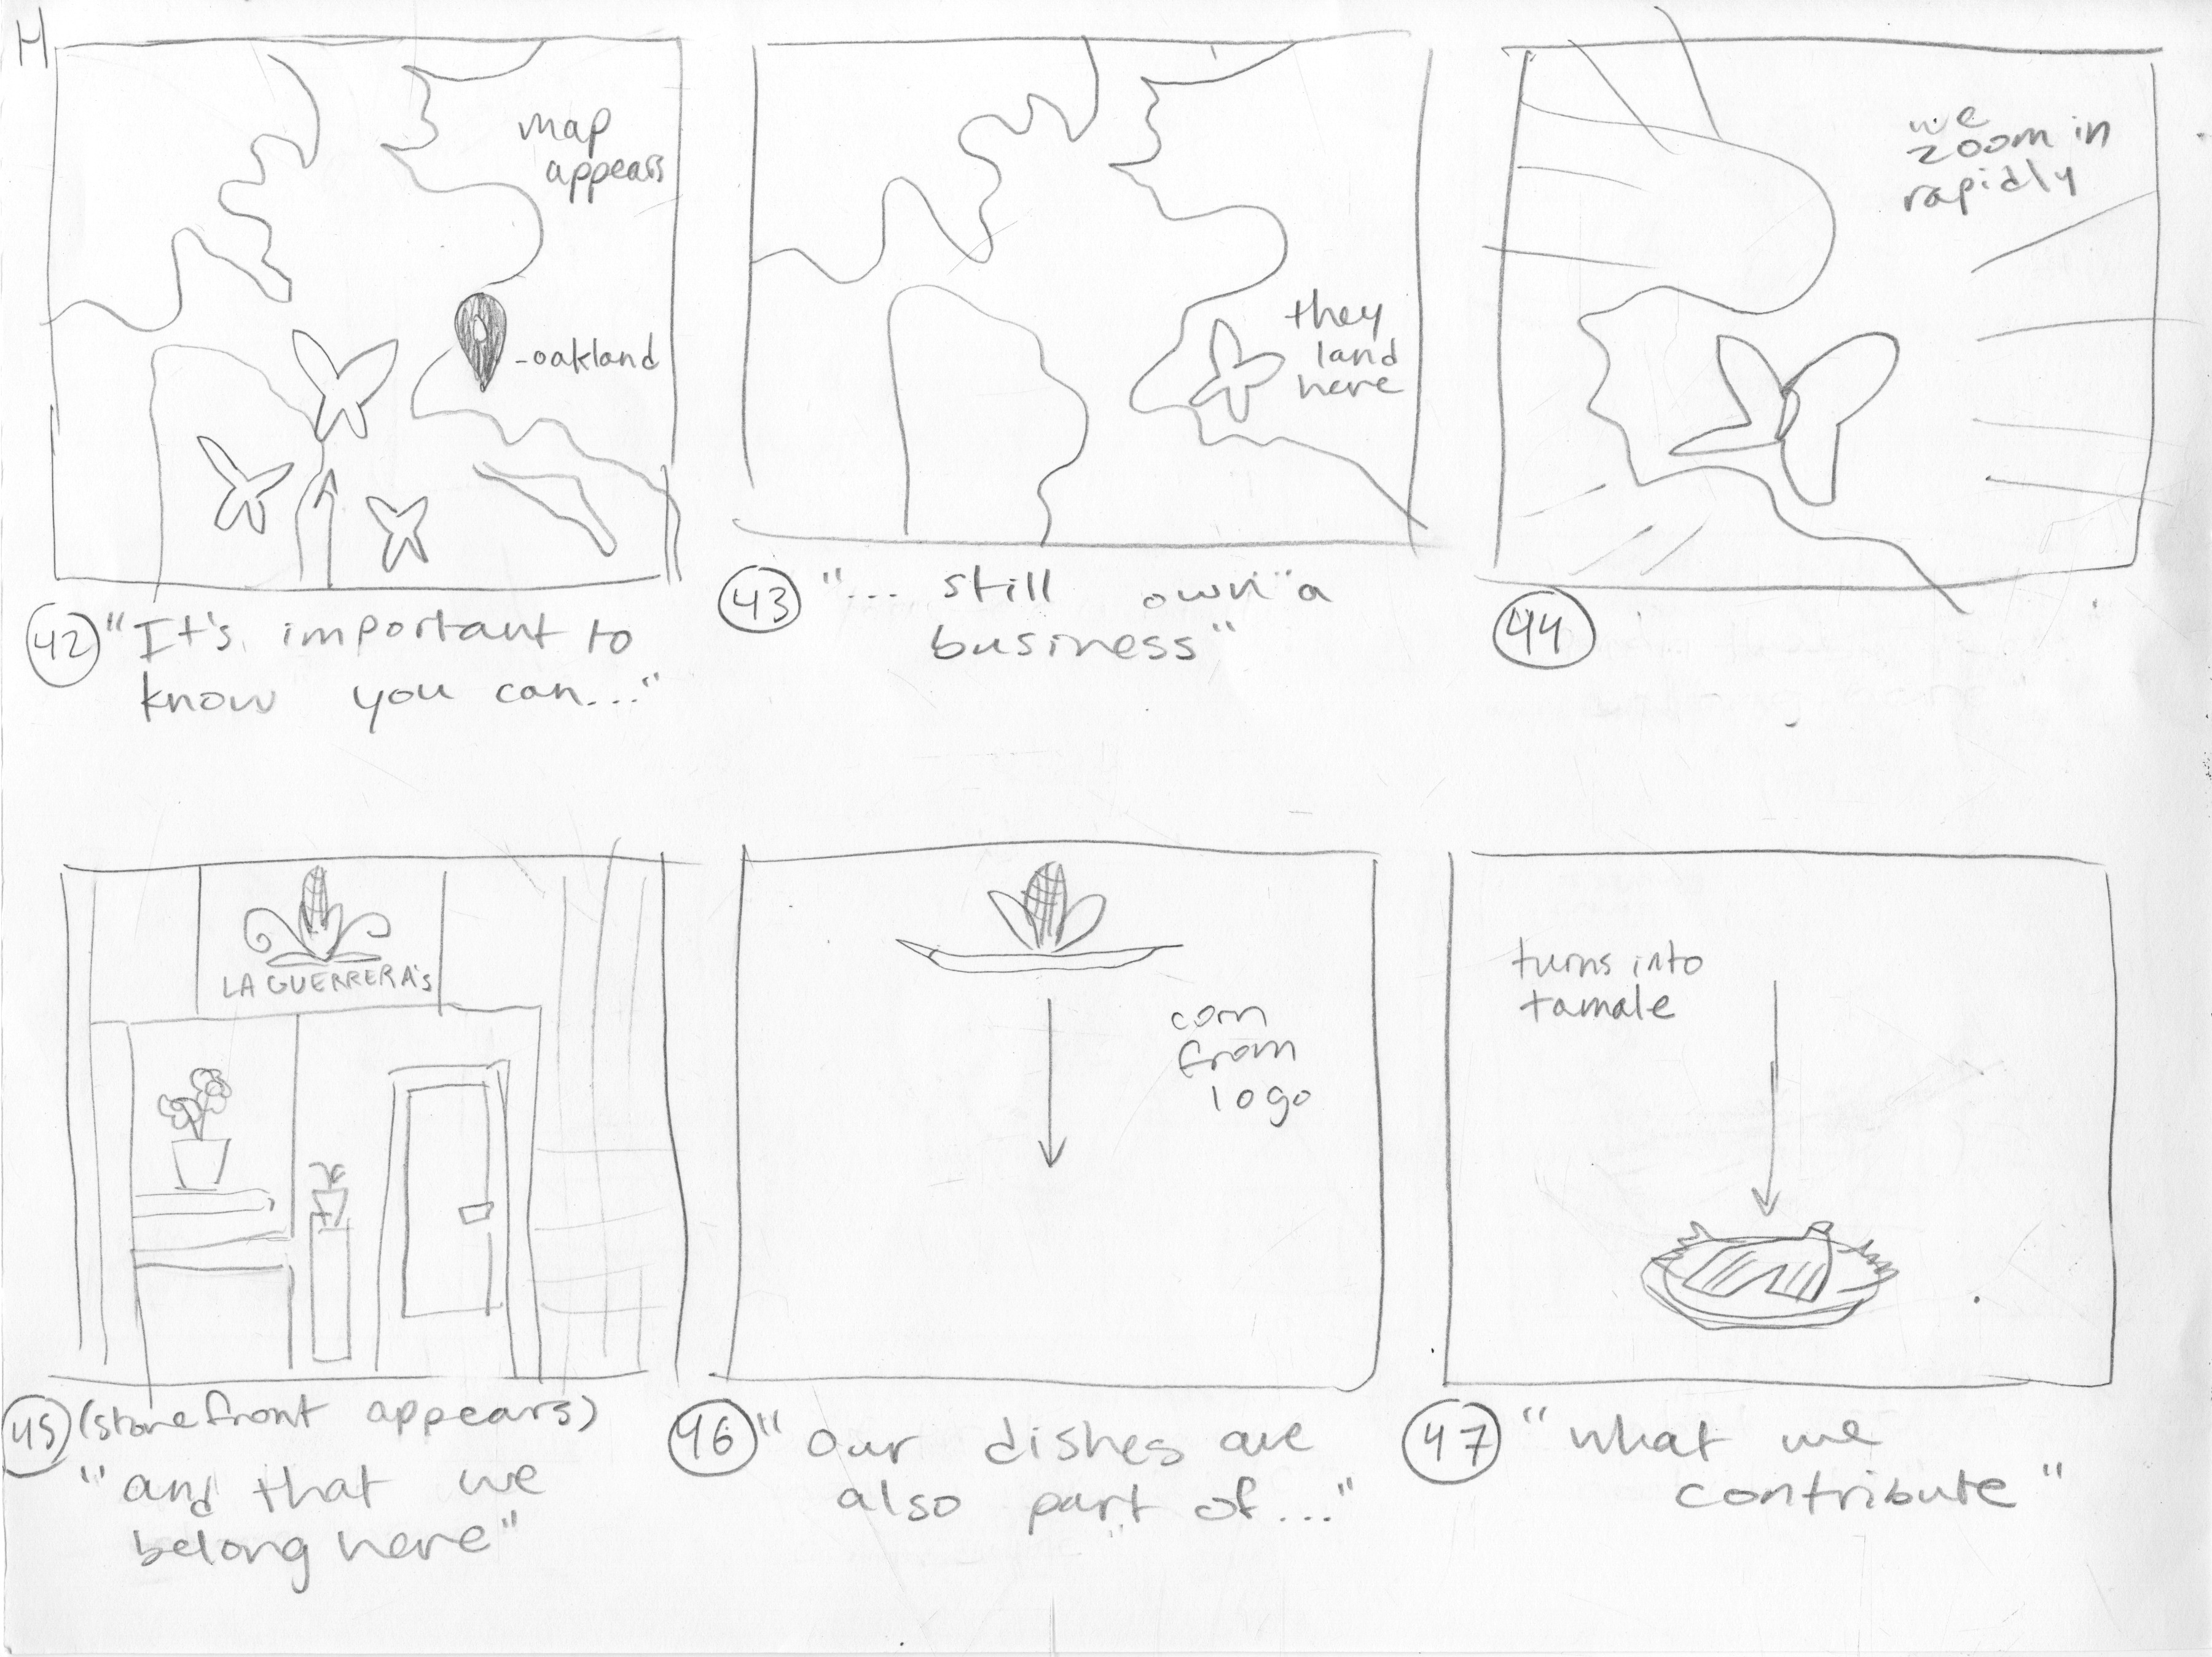 H
map
appears
-oakland
42 "It's important to
know you can..."
they
land
here
43 "... still own a
business"
we
zoom in
rapidly
44
LA GUERRERA's
45 (storefront appears)
"and that we
belong here"
corn
from
logo
46 "our dishes are
also part of..."
turns into
tamale
47 "what we
contribute"